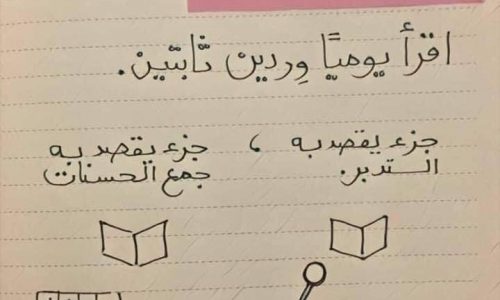 اقرأ يوميًا وِردين ثابتين.
جزء يقصد به التدبر.
،
جزء يقصد به جمع الحسنات